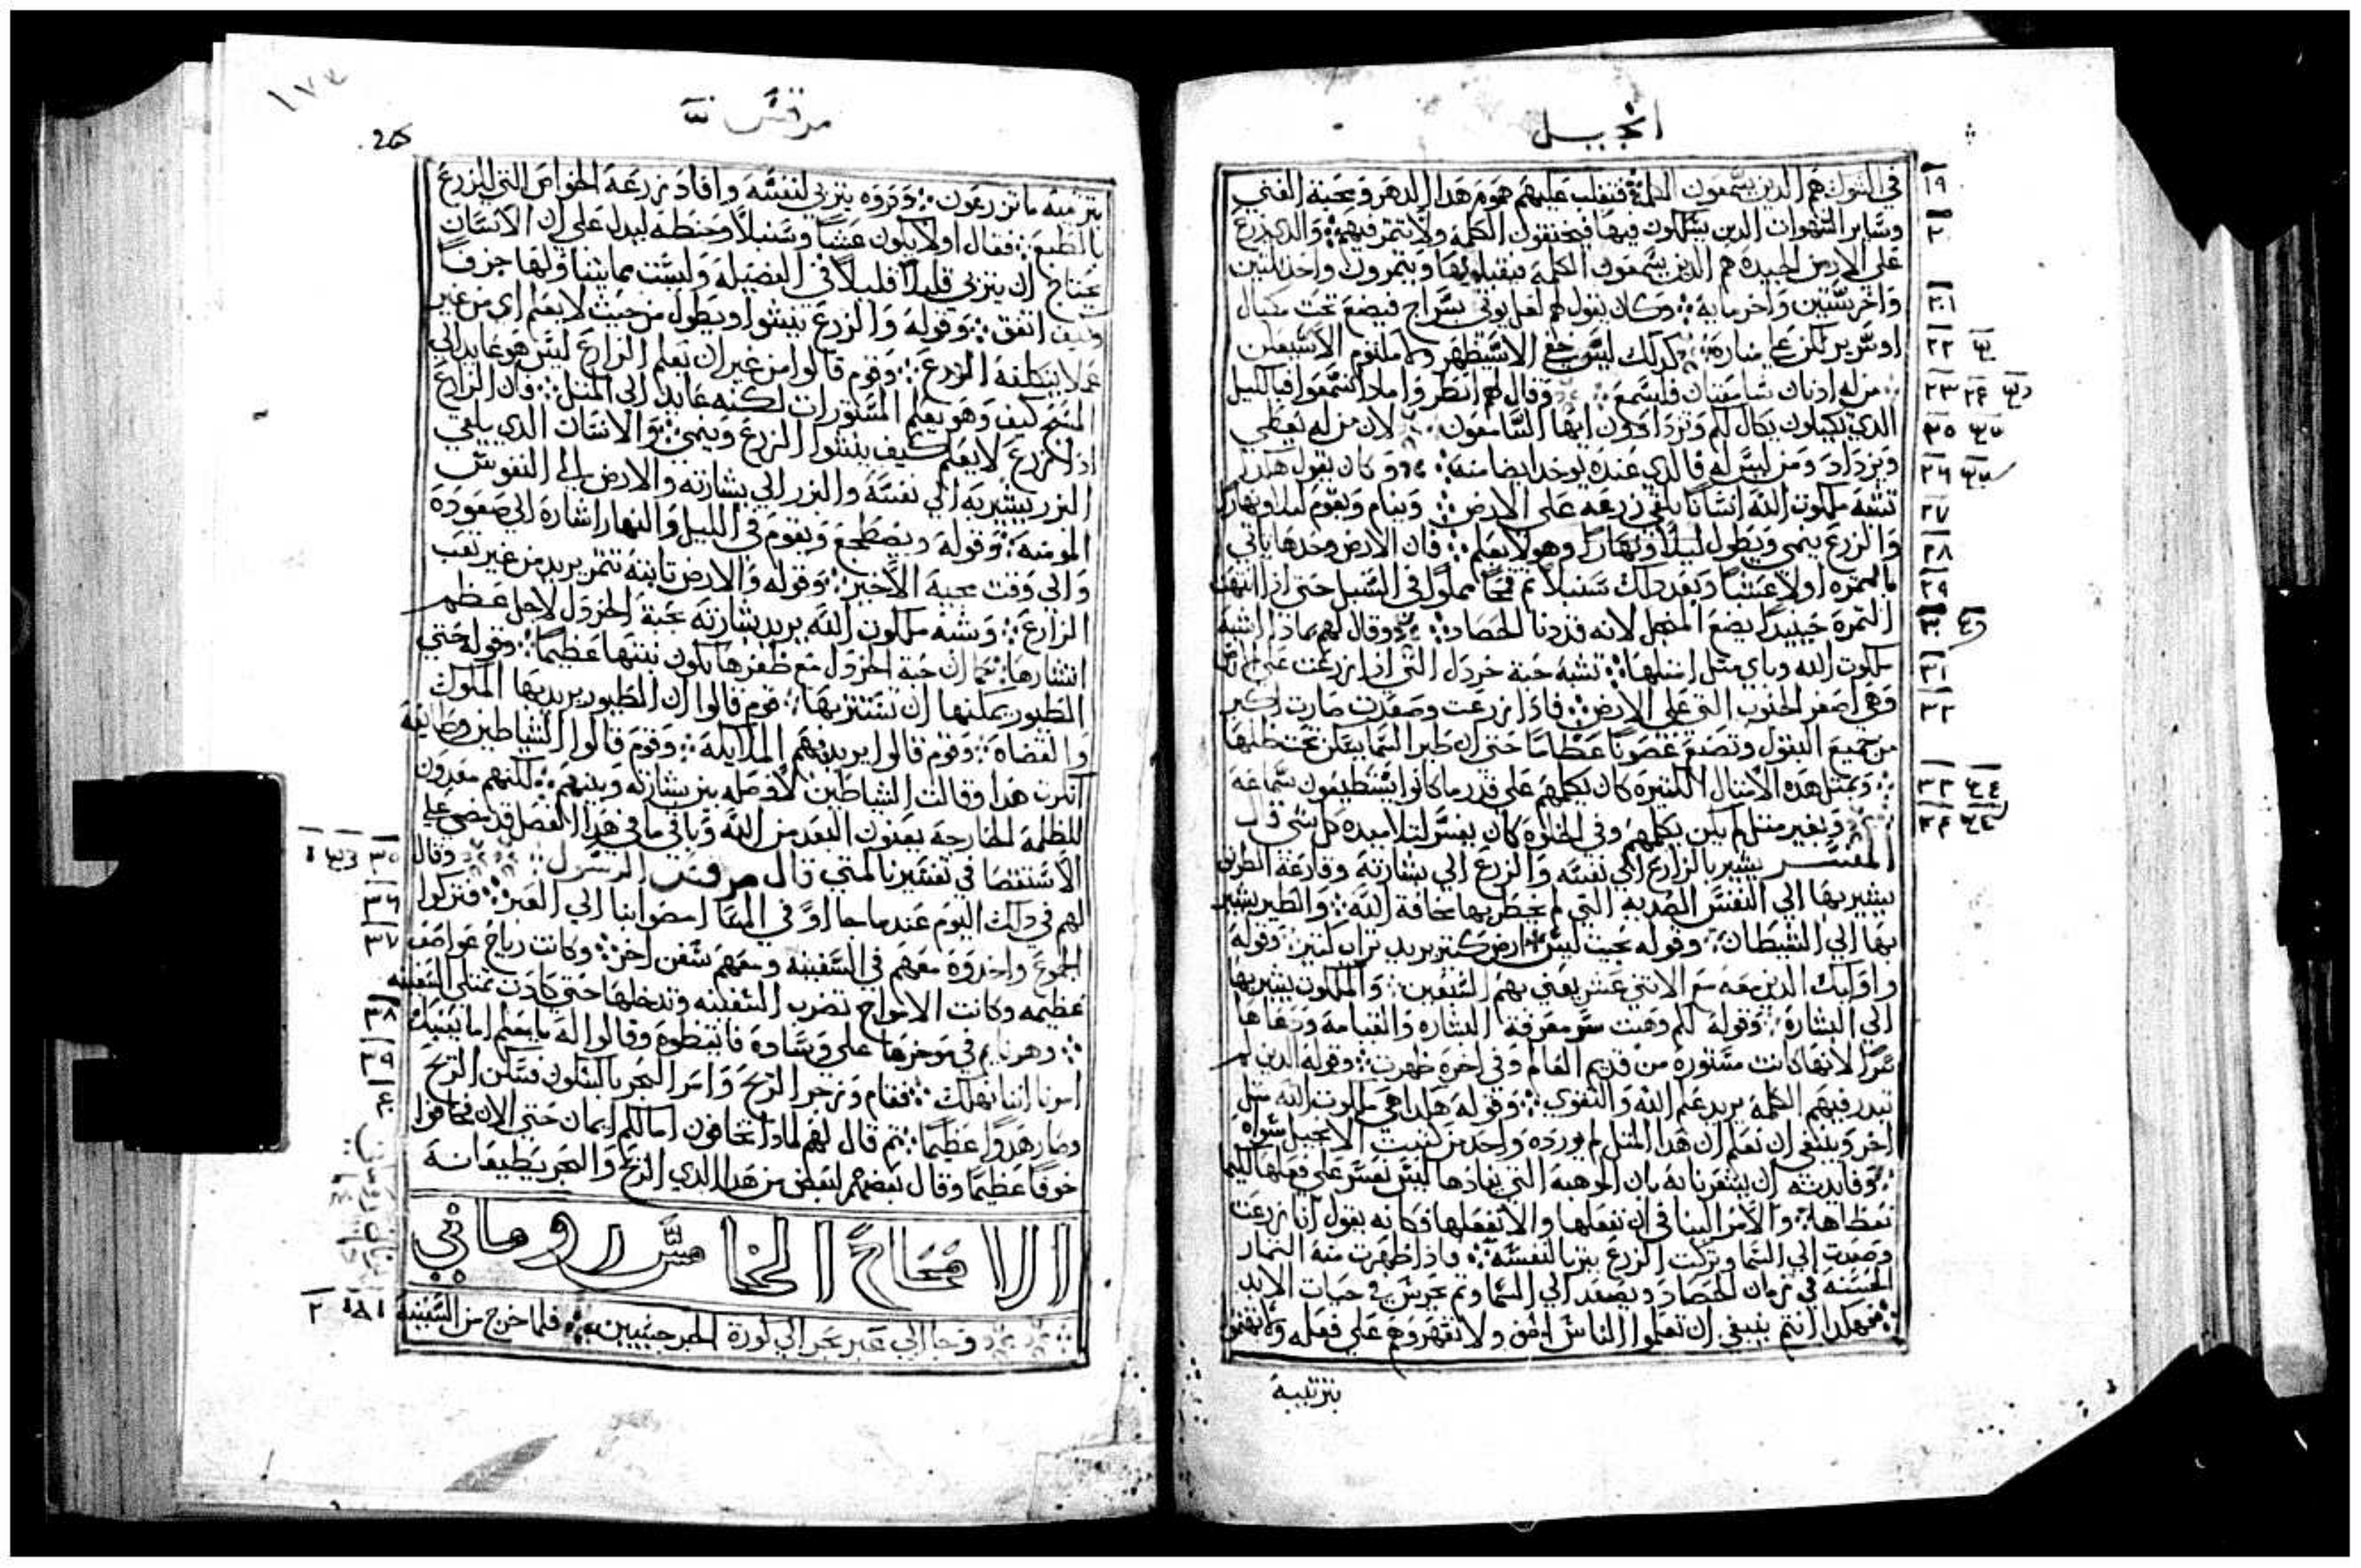 انجيل
في الشوك هم الدين يسمعون الكلمة فتغلب عليهم هموم هدا الدهر ومحبة الغني
وساير الشهوات الدين يسلكون فيها فيخنقون الكلمة ولا تتمر فيهم والدي زرع
علي الارض الجيدة هم الدين يسمعون الكلمة فيقبلونها ويتمرون واحد تلتين
واخر ستين واخر مايه وكان يقول لهم لعل يوتي بسراج فيضع تحت مكيال
او سرير لكن علي مناره كدلك ليس خفي الا سيظهر ولا مكتوم الا سيعلن
من له ادنان سامعتان فليسمع وقال لهم انظروا مادا تسمعوا فبالكيل
الدي تكيلون يكال لكم وتزدادون ايها السامعون لان من له يعطي
ويزداد ومن ليس له فالدي عنده يوخد ايضا منه وكان يقول هكدا
تشبه ملكوت الله انسانا يلقي زرعه علي الارض وينام ويقوم ليلا ونهارا
والزرع ينمي ويطول ليلا ونهارا وهو لا يعلم فان الارض وحدها تاتي
بالتمره اولا عشبا وبعد دلك سنبلا تم قمحا مملوا في السنبل حتي ادا انتهت
التمرة حينيد يضع المنجل لانه قد دنا الحصاد وقال لهم بمادا اشبه
ملكوت الله وباي متل امتلها تشبه حبة خردل التي ادا زرعت علي الارض
وهي اصغر الحبوب التي علي الارض فادا زرعت وصعدت صارت اكبر
من جميع البقول وتصنع غصونا عظاما حتي ان طير السما يسكن تحت ظلها
وبمتل هده الامتال الكتيرة كان يكلمهم علي قدر ما كانوا يستطيعون سماعه
وبغير متل لم يكن يكلمهم وفي الخلوه كان يفسر لتلاميده كل شي قال
المفسر يشير بالزارع الي نفسه والزرع الي بشارته وقارعة الطريق
يشير بها الي النفس الصديه التي لم يخطر بها مخافة الله والطير يشير
بها الي الشيطان وقوله بحيت ليس ارض كتير يريد تراب كتير وقوله
واوليك الدين معه مع الاتني عشر يعني بهم السبعين والملكوت يشير بها
الي البشارة وقوله لكم وهبت سر معرفة البشاره والقيامه ودعاها
سرا لانها كانت مستورة من قديم العالم وفي اخره ظهرت وقوله الدين لم
تبدر فيهم الكلمة يريد علم الله والتقوي وقوله هكدا هي ملكوت الله متل
اخر وينبغي ان تعلم ان هدا المتل لم يورده واحد من كتبت الانجيل سواه
وفايدته ان يشعرنا به بان الموهبه التي يفادها ليس نفسر علي فعلها لكيما
نعطاها والامر الينا في ان نفعلها والا نفعلها فكانه يقول انا زرعت
وصعدت الي السما وتركت الزرع يتربا لنفسه فادا ظهرت منه التمار
الحسنه في زمان الحصاد ويصعد الي السما وتم يحرس في حيات الابد
فهكدا انتم ينبغي ان تعلموا الناس الحق ولا تقهروهم علي فعله
بتربية
مرقس
بتربية ما تزرعون ودروه يتربي لنفسه وافاد زرعه الخواص التي للزرع
بالطبع فقال اولا يكون عشبا وسنبلا وحنطه ليدل علي ان الانسان
يحتاج ان يتربي قليلا قليلا في الفضيله وليست مما يتناولها جزفا
وكيف اتفق وقوله والزرع ينشوا ويطول من حيت لا يعلم اي من غير
عمل يتكلفه الزرع وقوم قالوا من غير ان يعلم الزارع ليس هو عايد الي
المسيح كيف وهو يعلم المستورات لكنه عايد الي المتل فان الزارع
ادا زرع لا يعلم كيف ينشوا الزرع وينمي والانسان الدي يلقي
البزر يشير به الي نفسه والبزر الي بشارته والارض الي النفوس
المومنه وقوله ويضطجع ويقوم في الليل والنهار اشارة الي صعوده
والي وقت مجيه الاخير وقوله والارض تابته تتمر يريد من غير تعب
الزارع وتشبه ملكوت الله يريد بشارته بحبة الخردل لاجل عظم
انتشارها كما ان حبة الخردل مع صغرها يكون نبتها عظيما وقوله حتي
الطيور يمكنها ان تستتر بها قوم قالوا ان الطيور يريد بها الملوك
والقضاه وقوم قالوا يريد بهم الملايكه وقوم قالوا الشياطين وطايفه
انكرت هدا وقالت الشياطين لا وصله بين بشارته وبينهم لكنهم معدون
للظلمه الخارجه يعنون البعد من الله وباقي ما في هدا الفصل قد مضي علي
الاستقصا في تفسيرنا لمتي قال مرقس الرسول وقال
لهم في دلك اليوم عند ما جا او في المسا امضوا بنا الي العبر فتركوا
الجموع واخدوه معهم في السفينه ومعهم سفن اخر وكانت رياح عواصف
عظيمه وكانت الامواج تضرب السفينه وتدخلها حتي كادت تمتلي السفينه
وهو نايم في موخرها علي وسادة فايقظوه وقالوا له يا معلم اما يعنيك
امرنا اننا نهلك فقام وزجر الريح وامر البحر بالسكون فسكن الريح
وصار هدوا عظيما تم قال لهم لمادا تخافون امالكم ايمان حتي الان فخافوا
خوفا عظيما وقال بعضهم لبعض من هدا الدي الريح والبحر يطيعانه
الاصحاح الخامس روماني
وجا الي عبر بحر الي كورة الجرجسيين فلما خرج من السفينة